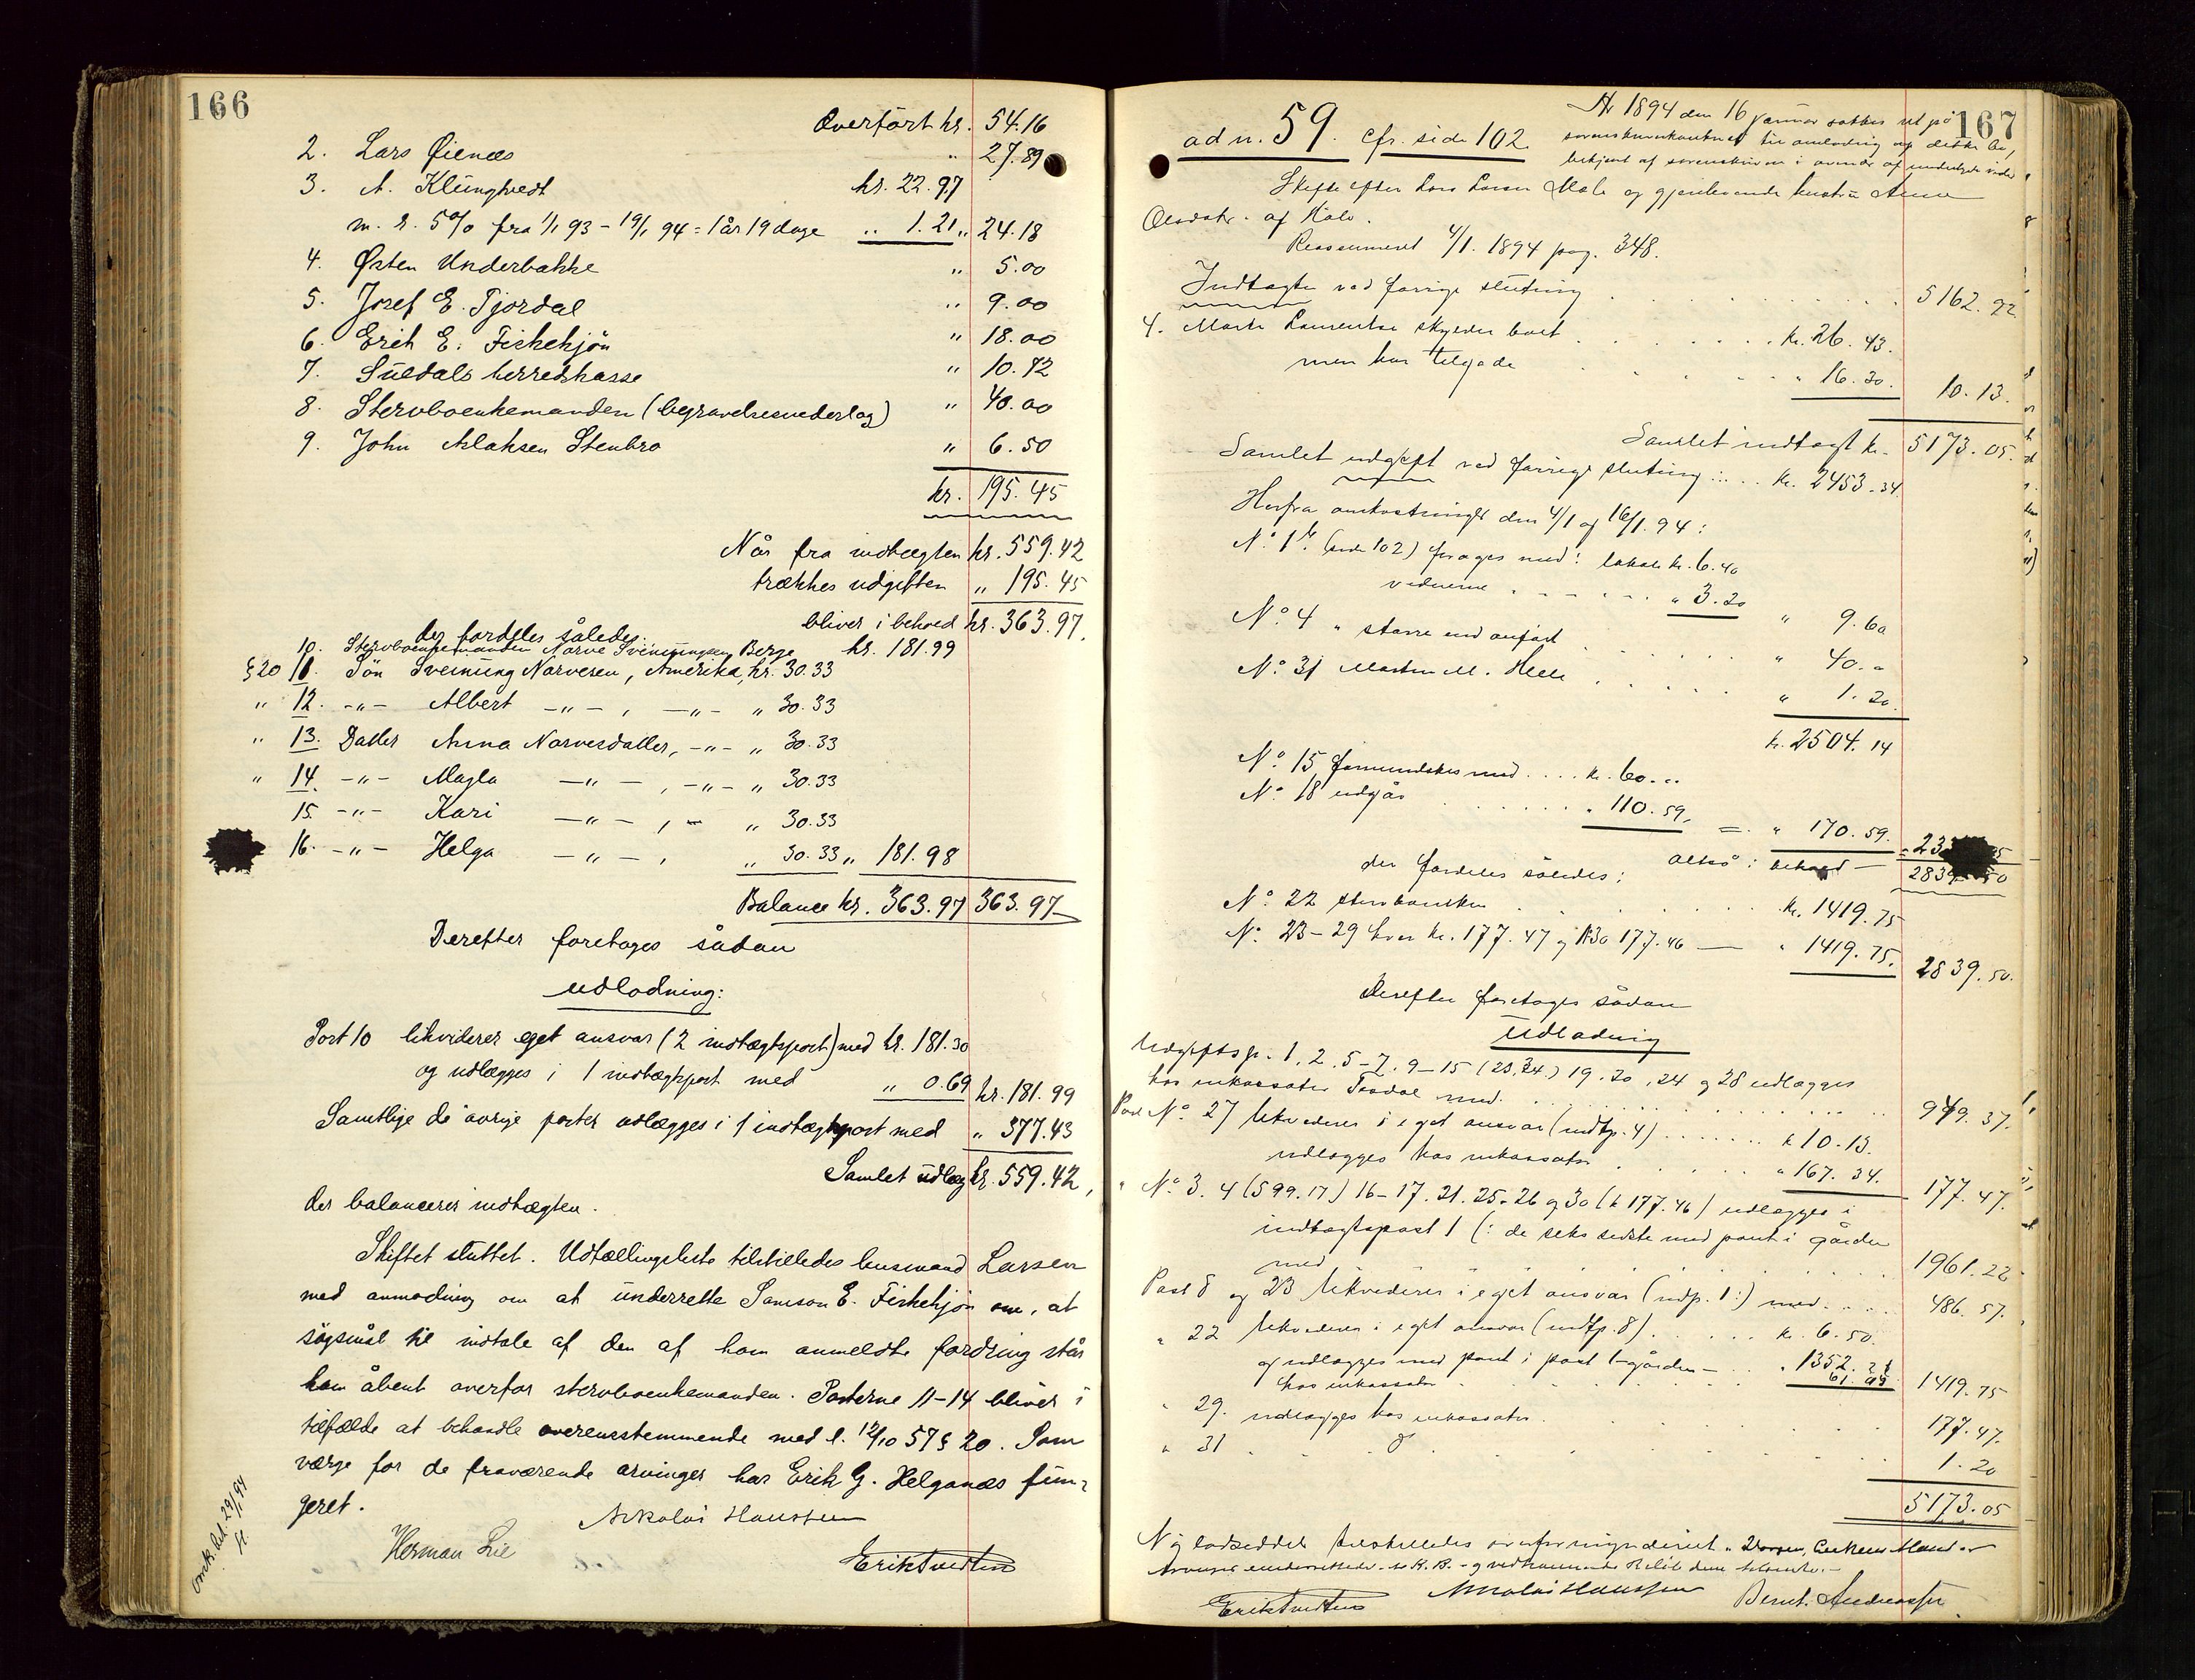 166
Overført kr. 54.16
2. Lars Øienes " 27.89
3. A. Klungtvedt kr. 22.97
m. r. 5% fra 1/1 93 - 19/1 94 = 1 år 19 dage " 1.21 " 24.18
4. Østen Underbakke " 5.00
5. Josef E. Tjordal " 9.00
6. Erik E. Fiskekjøn " 18.00
7. Suldals herredskasse " 10.72
8. Stervboenkemanden (begravelsesvederlag) " 40.00
9. John Aslaksen Stenbro " 6.50
kr. 195.45
Når fra indtægten kr. 559.42
trækkes udgiften " 195.45
bliver i behold kr. 363.97.
der fordeles således:
10. Stervboenkemanden Narve Sveinungsen Berge kr. 181.99
§ 20 11. Søn Sveinung Narvesen, Amerika, kr. 30.33
" 12. -"- Albert -"-, -"- " 30.33
" 13. Datter Anna Narvesdatter, -"- " 30.33
" 14. -"- Magla -"-, -"- " 30.33
15. -"- Kari -"-, - " 30.33
16. -"- Helga -"-, " 30.33 " 181.98
Balance kr. 363.97 363.97
Derefter foretages sådan
udlodning:
Post 10 likviderer eget ansvar (2 indtægtspost) med kr. 181.30
og udlægges i 1 indtægtspost med " 0.69 kr. 181.99
Samtlige de øvrige poster udlægges i 1 indtægtspost med " 377.43
Samlet udlæg kr. 559.42,
der balancerer indtægten.
Skiftet sluttet. Udtællingsliste tilstilledes lensmand Larsen
med anmodning om at underrette Samson E. Fiskekjøn om, at
søgsmål til indtale af den af ham anmeldte fordring står
ham åbent overfor stervboenkemanden. Posterne 11-14 bliver i
tilfælde at behandle overensstemmende med l. 12/10 57 § 20. Som
værge for de fraværende arvinger har Erik G. Helganæs fun-
geret.
Nikolai Hanssen
Herman Lie
Erik Tveiten
omk. bet. 29/1 94
H.
167
ad n. 59. cfr. side 102.
År 1894 den 16 januar sattes ret på
sorenskriverkontoret til utlodning og dette bo,
betjent af sorenskriveren i overvær af undertegnede vidner
Skifte efter Lars Larsen Mæle og gjenlevende hustru Anne
Olsdatr. af Hålv.
Reassumeret 4/1. 1894 pag. 348.
Indtægter ved forrige slutning 5162.92
4. Marta Lauritse skylder boet kr. 26.43.
men har tilgode " 16.30. 10.13.
Samlet indtægt kr. 5173.05.
Samlet udgift ved forrige slutning kr. 2453.34
Herfra omkostninger den 4/1 og 16/1. 94:
No. 1 b. (side 102) forøges med: lokale kr. 6.40
vidnerne " 3.20 " 9.60
No. 4 " større end anført " 40."
No. 31 Marten M. Hele " 1.20.
kr. 2504.14
No. 15 formindskes med kr. 60."
No. 18 udgår " 110.59. = " 170.59.
altså: behold 2839.50
der fordeles således:
No. 22 stervboenken kr. 1419.75
No. 23-29 hver kr. 177.47 og No 30 177.46 " 1419.75. 2839.50.
Derefter foretages sådan
Udlodning
Udgiftsp. 1, 2, 5-7, 9-15 (23,24.) 19. 20, 24 og 28 udlægges
hos inkassator med 949.37.
Post No. 27 likviderer i eget ansvar (indtp. 4) kr 10.13.
udlægges hos inkassator " 167.34. 177.47.
" No. 3. 4 (599.17) 16-17. 21. 25-26 og 30 (kr 177.46) udlægges i
indtægtspost 1 (: de seks sidste med pant i gården
med 1961.22
Post 8 og 23 likviderer i eget ansvar (indp. 1:) med 486.57.
" 22 likviderer i eget ansvar (indtp. 8) kr. 6.50.
og udlægges med pant i post 1-gården - " 1352.
hos inkassator 1419.75
" 29. udlægges hos inkassator 177.47.
" 31 1.20
5173.05
Erik Tveiten
Nikolai Hanssen
Bernt. Andreassen